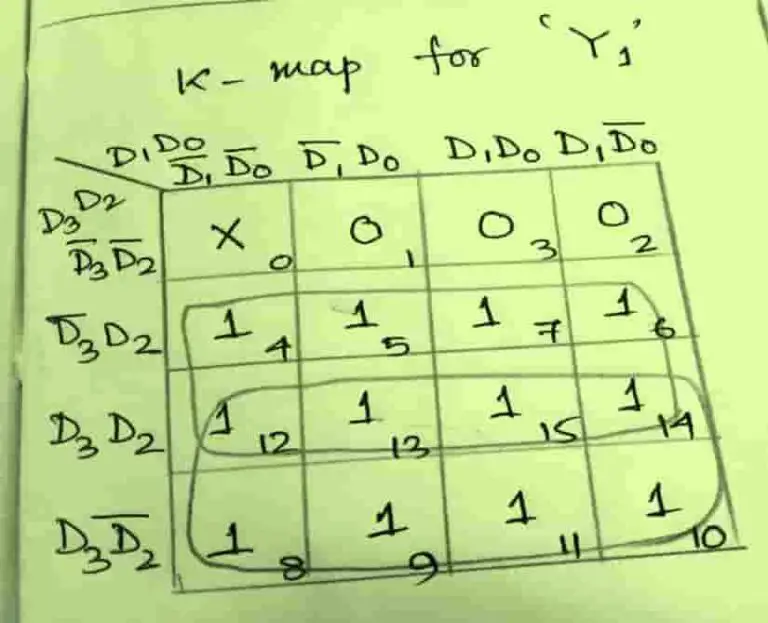 K-map for 'Y₁'
D₁D₀
D̅₁D̅₀ D̅₁D₀ D₁D₀ D₁D̅₀
D₃D₂
D̅₃D̅₂ X 0 0 1 0 3 0 2
D̅₃D₂ 1 4 1 5 1 7 1 6
D₃D₂ 1 12 1 13 1 15 1 14
D₃D̅₂ 1 8 1 9 1 11 1 10